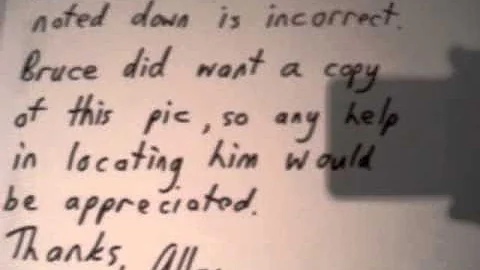 noted down is incorrect.
Bruce did want a copy
of this pic, so any help
in locating him would
be appreciated.
Thanks,